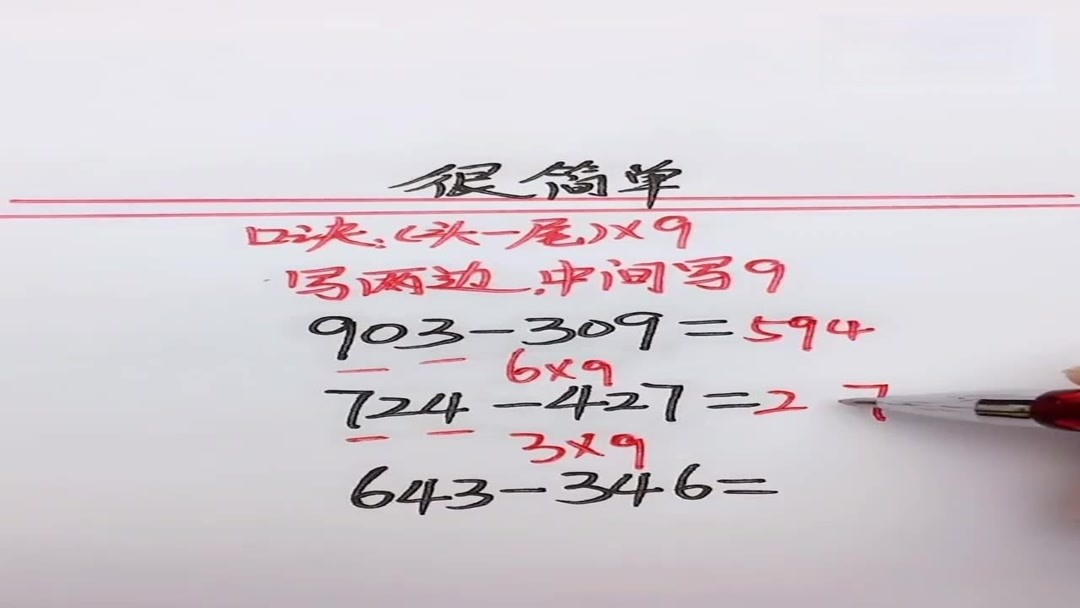 很简单
口诀:(头-尾)×9
写两边,中间写9
903-309=594
6×9
724-427=2 7
3×9
643-346=